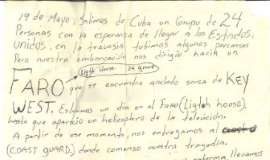 19 de Mayo: Salimos de Cuba un Grupo de 24
Personas con la esperanza de llegar a los Estados
Unidos, en la travesia tubimos algunos percanses
Para nuestra embarcación nos dirigió hacia un
Ligth House
FARO que se encuentra anclado serca de KEY
WEST. Estuvimos un dia en el Faro (Ligth house)
hasta que aparecio un helicoptero de la television.
A partir de ese momento, nos entregamos al
(COAST GUARD) donde comenzo nuestra tragedia.